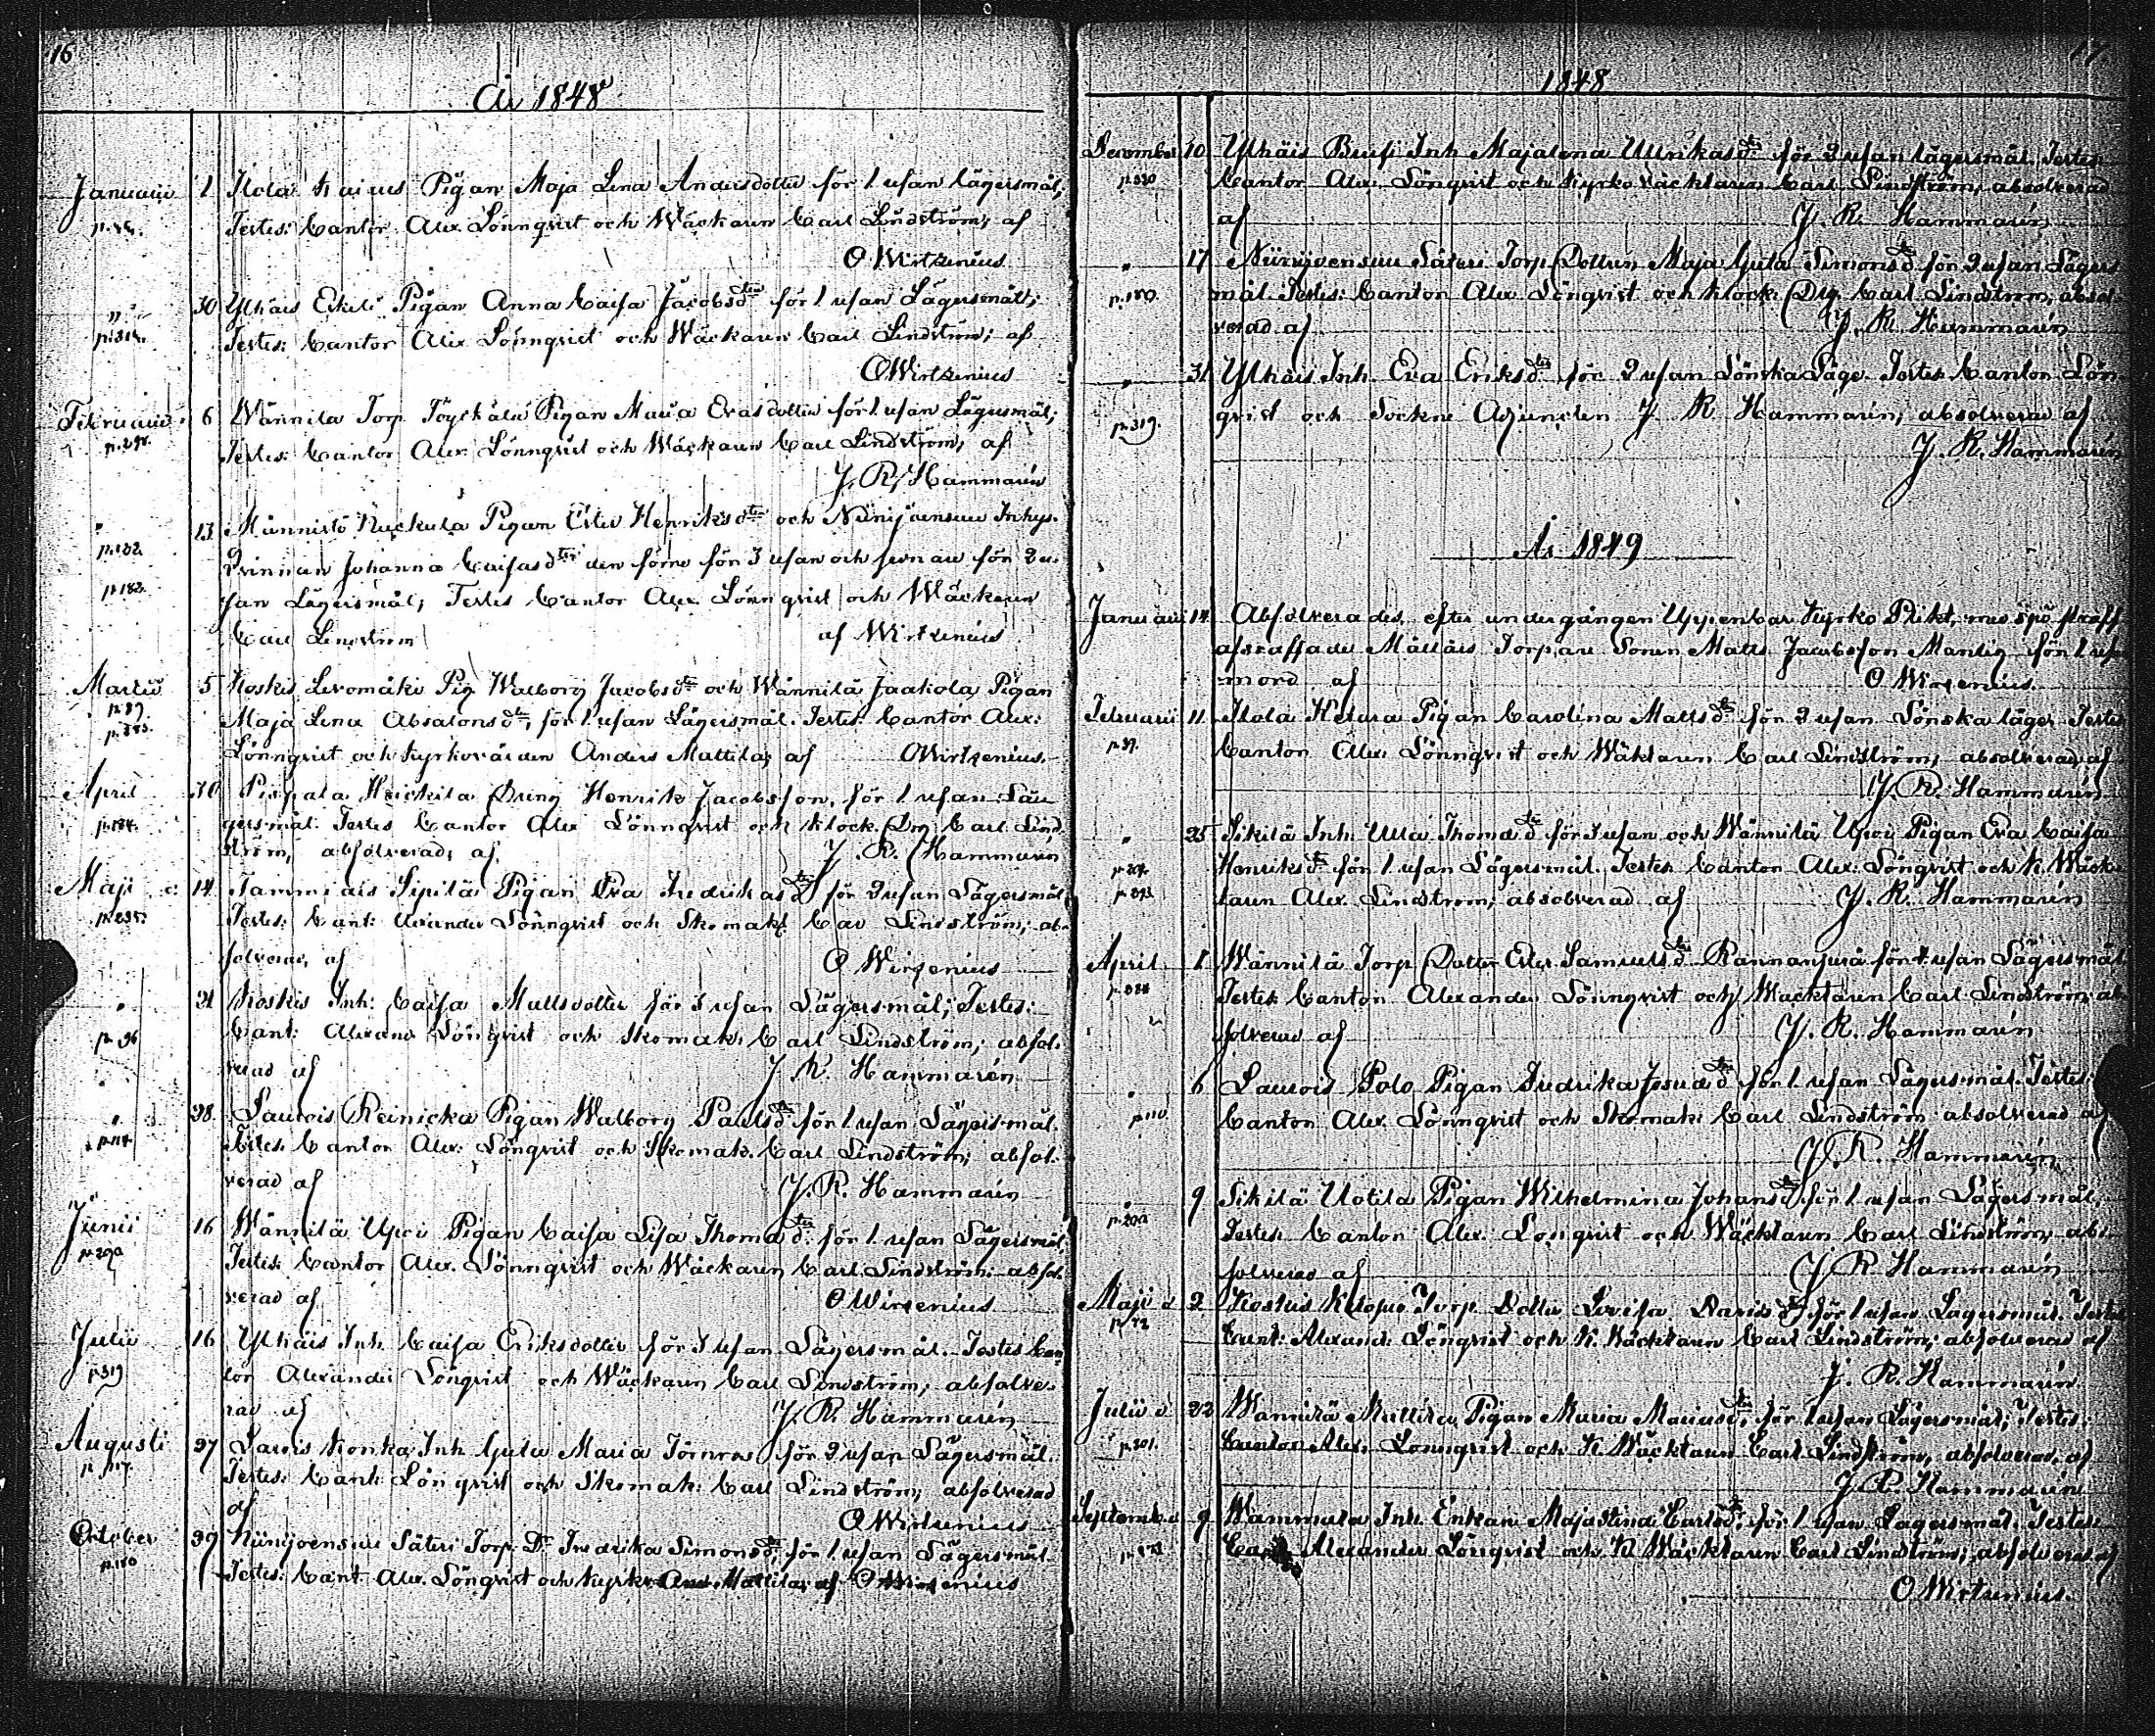 16
År 1848
Januarii 1 Itola Pigan Maja Lena Andersdotter för 1 resan lägersmål,
Testes: Cantor Alex. Lönnqvist och Wäckaren Carl Lindström, af
O Wirtzenius
" 30 Ylhäis Erkilä Pigan Anna Caisa Jacobsdter för 1 resan Lägersmål;
Testes: Cantor Alex Lönnqvist och Wäckaren Carl Lindström; af
O Wirtzenius
Februarii 6 Wännilä Torp. Pigan Maria Evasdotter för 1 resan Lägersmål;
p. 298.
Testes: Cantor Alex. Lönnqvist och Wäckaren Carl Lindström, af
J. R. Hammarén
" 13 Männistö Kuckula Pigan Ester Henriksdter och Niinijoensuu Inhys.
p. 132.
Qvinnan Johanna Caisasdter den förre för 3 resan och senare för 2 re-
p. 182.
san Lägersmål; Testes Cantor Alex. Lönnqvist och Wäckaren
Carl Lindström af Wirtzenius
Martii 5 Koskis Levomäki Pig. Walborg Jacobsdter och Wännilä Jaakola Pigan
p. 89
Maja Lena Absalonsdter, för 1 resan Lägersmål. Testes: Cantor Alex:
Lönnqvist och Kyrkovärden Anders Mattila, af O Wirtzenius.
April 30 Pispala Heickilä Dreng Henrik Jacobsson, för 1 resan Lä-
p. 184.
gersmål. Testes Cantor Alex Lönnqvist och Klock. Drg. Carl Lind-
ström, absolverad, af J. R. Hammarén
Maji d. 14 Tammiais Sipilä Pigan Eva Fredrikasdter för 2 resan Lägersmål
p. 235.
Testes: Cant: Alexander Lönnqvist och Skomak. Carl Lindström; ab-
solverad, af O Wirzenius
" 21 Koskis Inh: Caisa Mattsdotter för 3 resan Lägersmål; Testes:
p. 96
Cant: Alexand Lönqvist och Skomak. Carl Lindström; absol-
verad af J. R. Hammarén
" 28. Laurois Reinicka Pigan Walborg Paulsdter för 1 resan Lägersmål.
p. 114
Testes. Cantor Alex: Lönqvist och Skomak. Carl Lindström; absol-
verad af J. R. Hammarén
Junii 16 Wännilä Upoi Pigan Caisa Lisa Thomædter för 1 resan Lägersmål;
p. 290
Testes: Cantor Alex. Lönnqvist och Wäckaren Carl Lindström. absol-
verad af O Wirzenius
Julii 16 Ylhäis Inh. Caisa Eriksdotter för 3 resan Lägersmål. Testes Can-
p. 319
tor Alexander Lönqvist och Wäckaren Carl Lindström; absolve-
rad af J. R. Hammarén
Augusti 27 Lauois Konka Inh. Greta Maria Törnros för 2 resan Lägersmål.
p. 117.
Testes: Cant: Lönqvist och Skomak: Carl Lindström; absolverad
af O Wirtzenius
October 29 Niinijoensuu Säteri Torp. Dr. Fredrika Simonsdter för 1 resan Lägersmål.
p. 180
Testes: Cant. Alex. Lönqvist och Kyrkv. And. Mattila, af O Wirzenius
17.
1848
December 10 Ylhäis Inh Majalena Ulrikasdter för 2 resan lägersmål, Testes
p. 330
Cantor Alex. Lönqvist och Kyrko väcktaren Carl Lindström, absolverad
af J. R. Hammarén
" 17 Niinijoensuu Säteri Torp Dottren Maja Greta Simonsdter för 2 resan Lägers
p. 180.
mål. Testes: Cantor Alex Lönqvist och Klock. Drg. Carl Lindström, absol-
verad af J. R. Hammarén
" 31 Ylhäis Inh. Eva Eriksdter för 2 resan Lönska Läge. Testes Cantor Lön
p. 319.
qvist och Sockne Adjuncten J R Hammarén, absolverad af
J. R. Hammarén
År 1849
Januarii 14 Absolverades, efter undergången Uppenbar Kyrko Plikt, med spö straff
afstraffade Torpare Sonen Matts Jacobsson Mantig för 1 resan
mord af O Wirzenius.
Februarii 11. Itola Pigan Carolina Mattsdter för 2 resan Lönska läger Testes
p. 37.
Cantor Alex. Lönnqvist och Wäktaren Carl Lindström, absolverad af
J. R. Hammarén
" 25 Sikilä Inh. Ulla Thomædter för 3 resan och Wännilä Upoi Pigan Eva Caisa
Henriksdter för 1 resan Lägersmål. Testes. Cantor Alex: Lönqvist och K. Wäck-
taren Alex. Lindström; absolverad af J. R. Hammarén
April 1 Wännilä Torp Dotter Ester Samuelsdter Rannanjura för 1 resan Lägersmål
Testes Cantor Alexander Lönnqvist och Wacktaren Carl Lindström, ab-
solverad af J. R. Hammarén
" 6 Laurois Polo Pigan Fredrika Josuædter för 1 resan Lägersmål. Testes:
p. 110.
Cantor Alex. Lönnqvist och Skomak: Carl Lindström absolverad af
J. R. Hammarén
" 9 Sikilä Uotila Pigan Wilhelmina Johansdter för 1 resan Lägersmål.
Testes. Cantor Alex: Lönqvist och Wäcktaren Carl Lindström, ab-
solverad af J R Hammarén
Maji d 2 Koskis Torp. Dotter Lovisa Davidsdter för 1 resan Lägersmål. Testes
p. 72
Cant: Alexand: Lönqvist och K. Wäcktaren Carl Lindström; absolverad af
J. R. Hammarén
Julii d 22 Wännilä Mattila Pigan Maria Mariasdter, för 1 resan Lägersmål; Testes.
p. 301.
Cantor Alex. Lönnqvist och K Wäcktaren Carl Lindström, absolverad, af
J R. Hammarén
Septemb. d 9 Wammula Inh. Enkan Majastina Carlsdter för 1 resan Lägersmål. Testes
Alexander Lönqvist och K Wäcktaren Carl Lindström; absolverad af
O Wirtzenius.